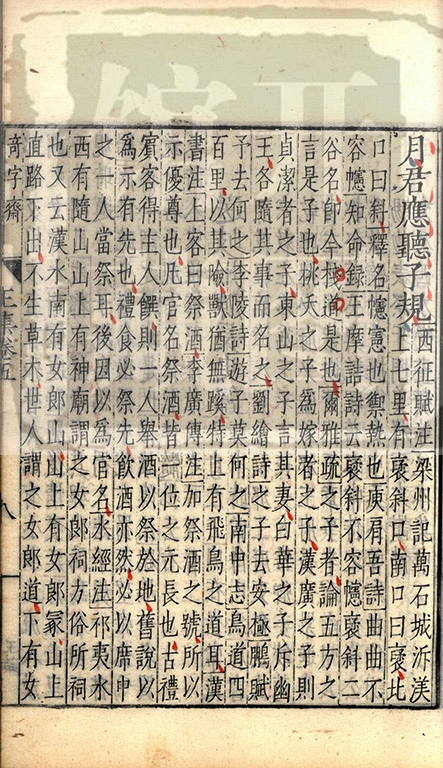 月君應聽子規
西征賦注梁州記萬石城泝漢
上七里有褒斜口南口曰褒北
口曰斜釋名幰憲也禦熱也庾肩吾詩曲曲不
容幰知命録王摩詰詩云褒斜不容幰褒斜二
谷名即今棧道是也爾雅疏之子者論五方之
言是子也桃夭之子為嫁者之子漢廣之子則
貞潔者之子東山之子言其妻白華之子斥幽
王各隨其事而名之劉繪詩之子去安極鵩賦
予去何之李陵詩遊子莫何之南中志鳥道四
百里以其險獸猶無蹊特上有飛鳥之道耳漢
書注上客曰祭酒李廣傳注加祭酒之號所以
示優尊也凡官名祭酒皆一位之元長也古禮
賓客得主人饌則一人舉酒以祭於地舊說以
為示有先也禮食必祭先飲酒亦然必以席中
之一人當祭耳後因以為官名水經注祁夷水
西有隨山山上有神廟謂之女郎祠方俗所祠
也又云漢水南有女郎山山上有女郎冢山上
直路下出不生草木世人謂之女郎道下有女
奇字齋 王集卷五 八